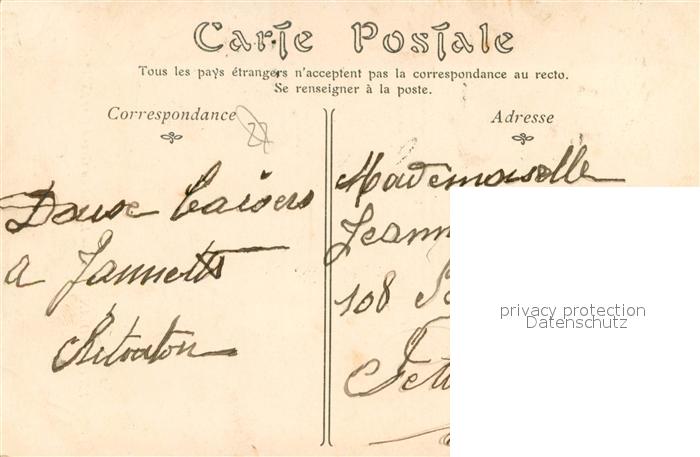 Carte Postale
Tous les pays étrangers n'acceptent pas la correspondance au recto.
Se renseigner à la poste.
Correspondance
Adresse
Douse baisers
a Jannette
Mademoiselle
Jeann
108
privacy protection
Datenschutz